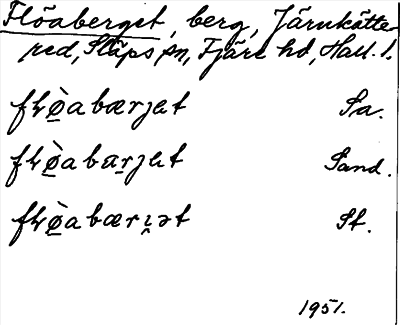 Flöaberget, berg, Järnkätte
red, Släps sn, Fjäre hd, Hall. l.
fꞎø̠̀abærjət Sa.
fꞎø̠̀abæ̠rjət Sand.
fꞎø̠̀abærı̯ət St.
1951.